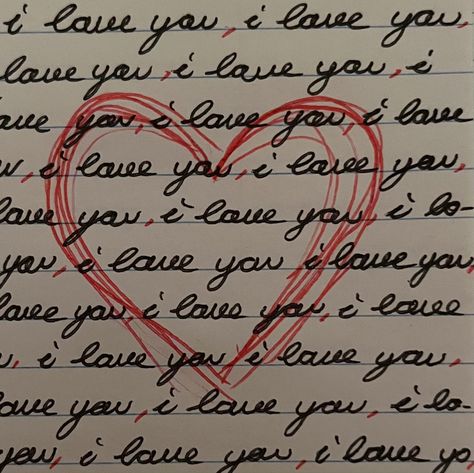 i love you, i love you,
love you, i love you, i
ove you, i love you, i love
u, i love you, i love you,
love you, i love you, i lo-
you, i love you, i love you,
love you, i love you, i love
u, i love you, i love you,
ove you, i love you, i lo-
you, i love you, i love yo